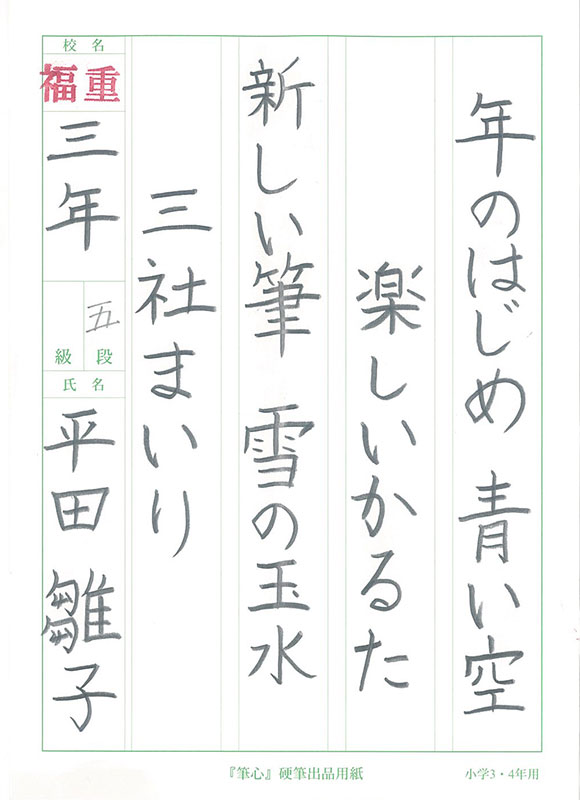 年のはじめ 青い空
楽しいかるた
新しい筆 雪の玉水
三社まいり
校名
福重
三年
五
級 段
氏名
平田 雛子
『筆心』硬筆出品用紙
小学3・4年用